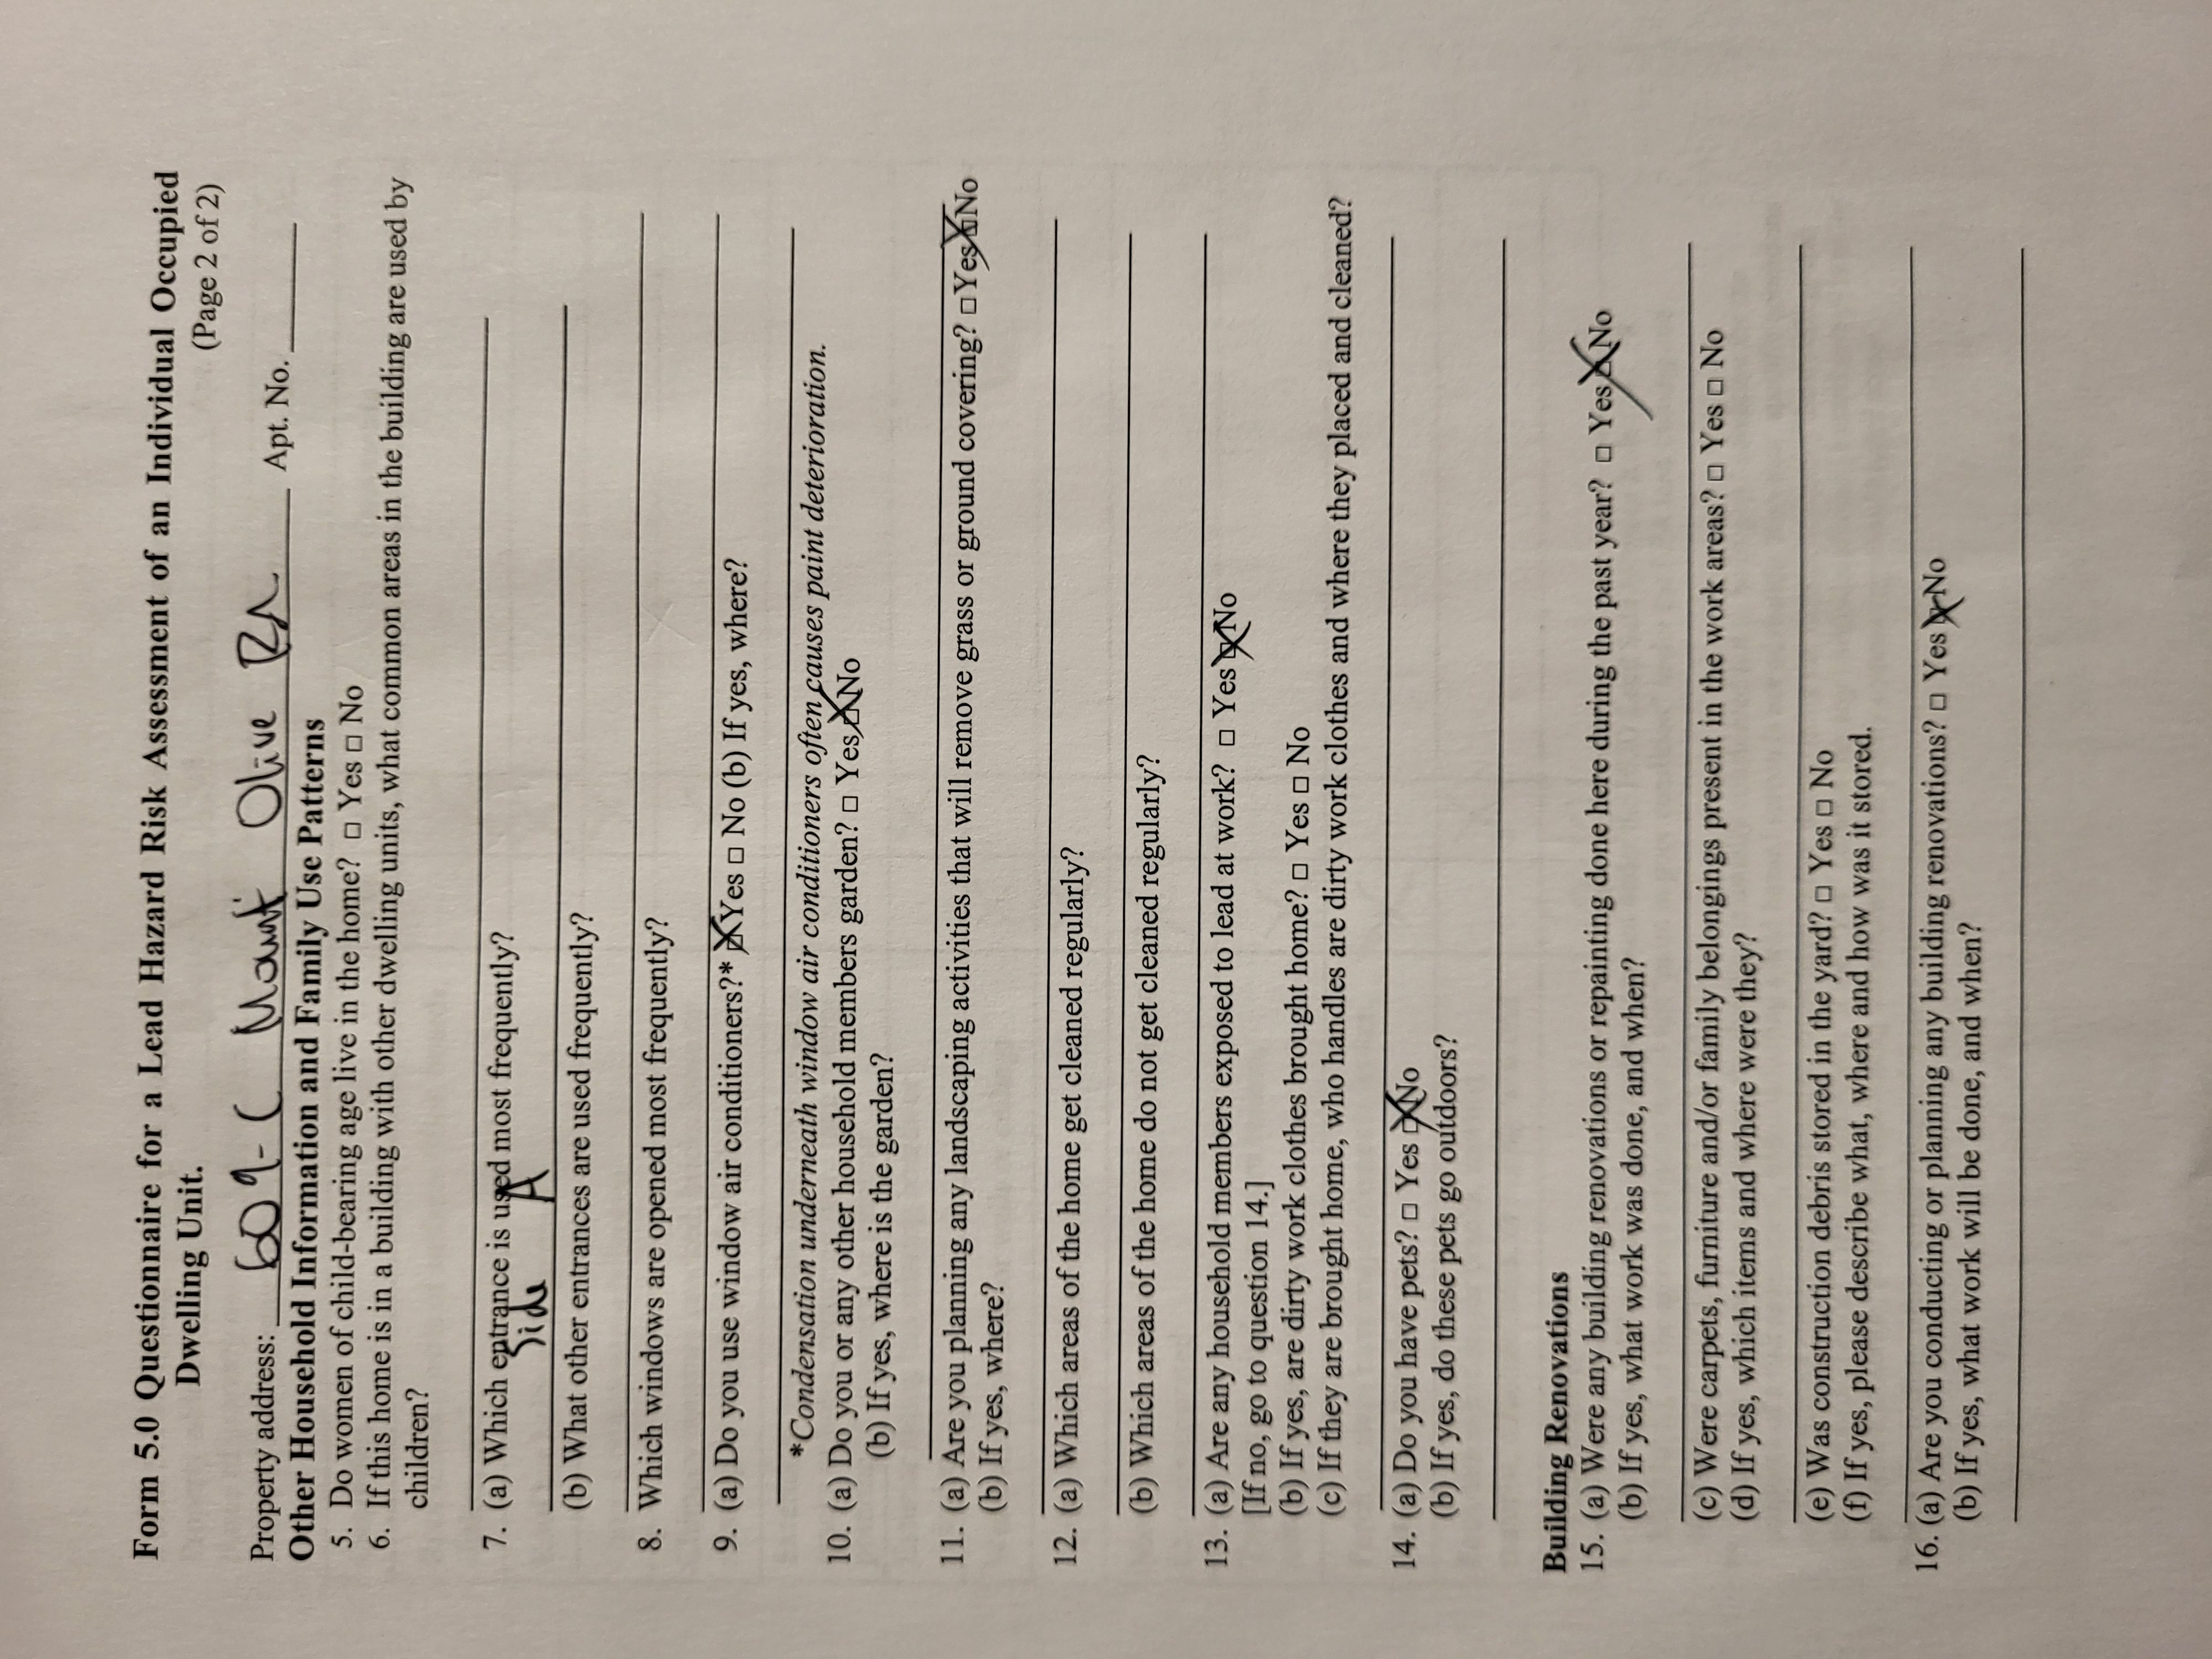 Form 5.0 Questionnaire for a Lead Hazard Risk Assessment of an Individual Occupied
Dwelling Unit. (Page 2 of 2)
Property address: 609-C Mount Olive Rd Apt. No.
Other Household Information and Family Use Patterns
5. Do women of child-bearing age live in the home? □ Yes □ No
6. If this home is in a building with other dwelling units, what common areas in the building are used by
children?
7. (a) Which entrance is used most frequently?
Side A
(b) What other entrances are used frequently?
8. Which windows are opened most frequently?
9. (a) Do you use window air conditioners?* ☒ Yes □ No (b) If yes, where?
*Condensation underneath window air conditioners often causes paint deterioration.
10. (a) Do you or any other household members garden? □ Yes ☒ No
(b) If yes, where is the garden?
11. (a) Are you planning any landscaping activities that will remove grass or ground covering? □ Yes ☒ No
(b) If yes, where?
12. (a) Which areas of the home get cleaned regularly?
(b) Which areas of the home do not get cleaned regularly?
13. (a) Are any household members exposed to lead at work? □ Yes ☒ No
[If no, go to question 14.]
(b) If yes, are dirty work clothes brought home? □ Yes □ No
(c) If they are brought home, who handles are dirty work clothes and where they placed and cleaned?
14. (a) Do you have pets? □ Yes ☒ No
(b) If yes, do these pets go outdoors?
Building Renovations
15. (a) Were any building renovations or repainting done here during the past year? □ Yes ☒ No
(b) If yes, what work was done, and when?
(c) Were carpets, furniture and/or family belongings present in the work areas? □ Yes □ No
(d) If yes, which items and where were they?
(e) Was construction debris stored in the yard? □ Yes □ No
(f) If yes, please describe what, where and how was it stored.
16. (a) Are you conducting or planning any building renovations? □ Yes ☒ No
(b) If yes, what work will be done, and when?